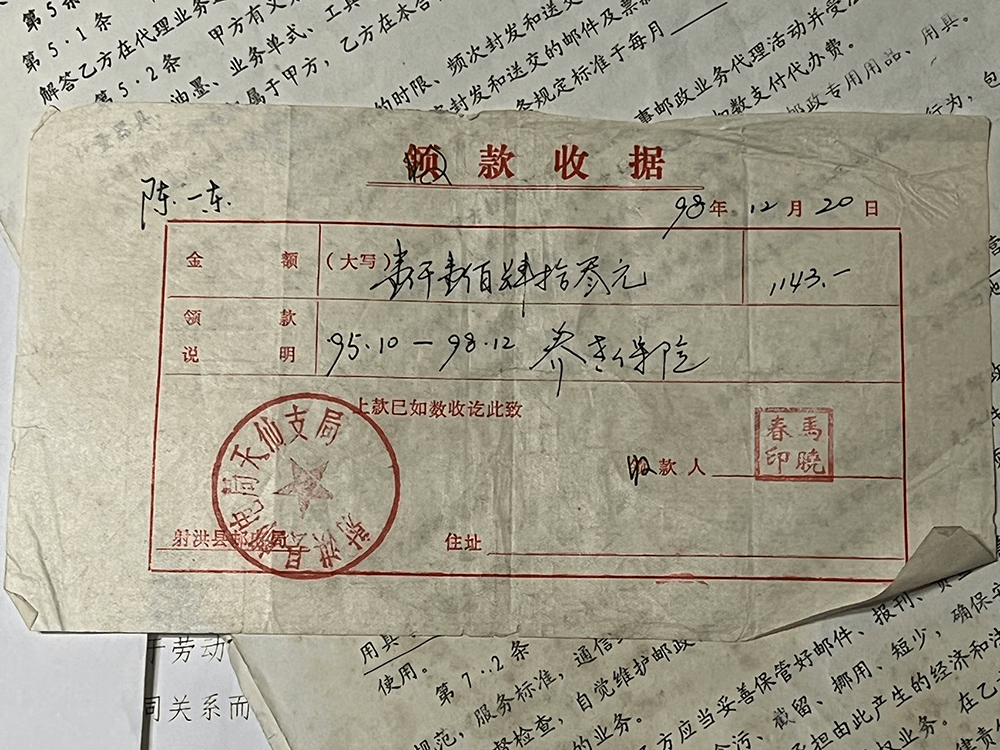 第5条
第5·1条 甲方有义
解答乙方在代理业务
第5·2条 乙方在本合
油墨、业务单式、工具
属于甲方，
的时限、频次封发和送交
封发和送交的邮件及票
条规定标准于每月
事邮政业务代理活动并受
如数支付代办费。
邮政专用用品、用具。
行为，包
收款收据
陈一东
98年12月20日
金额 （大写）壹仟壹佰肆拾叁元 1143.-
领款说明 95.10-98.12 养老保险
上款已如数收讫此致
收款人 马晓春印
射洪县邮电局 住址
射洪县邮电局天仙支局
劳动
同关系而
用具
使用。
第7.2条
服务标准，通信
规范，自觉维护邮政
督检查，
的业务。
方应当妥善保管好邮件、报刊、
污、截留、挪用、短少，确保
承担由此产生的经济和
业务。在乙